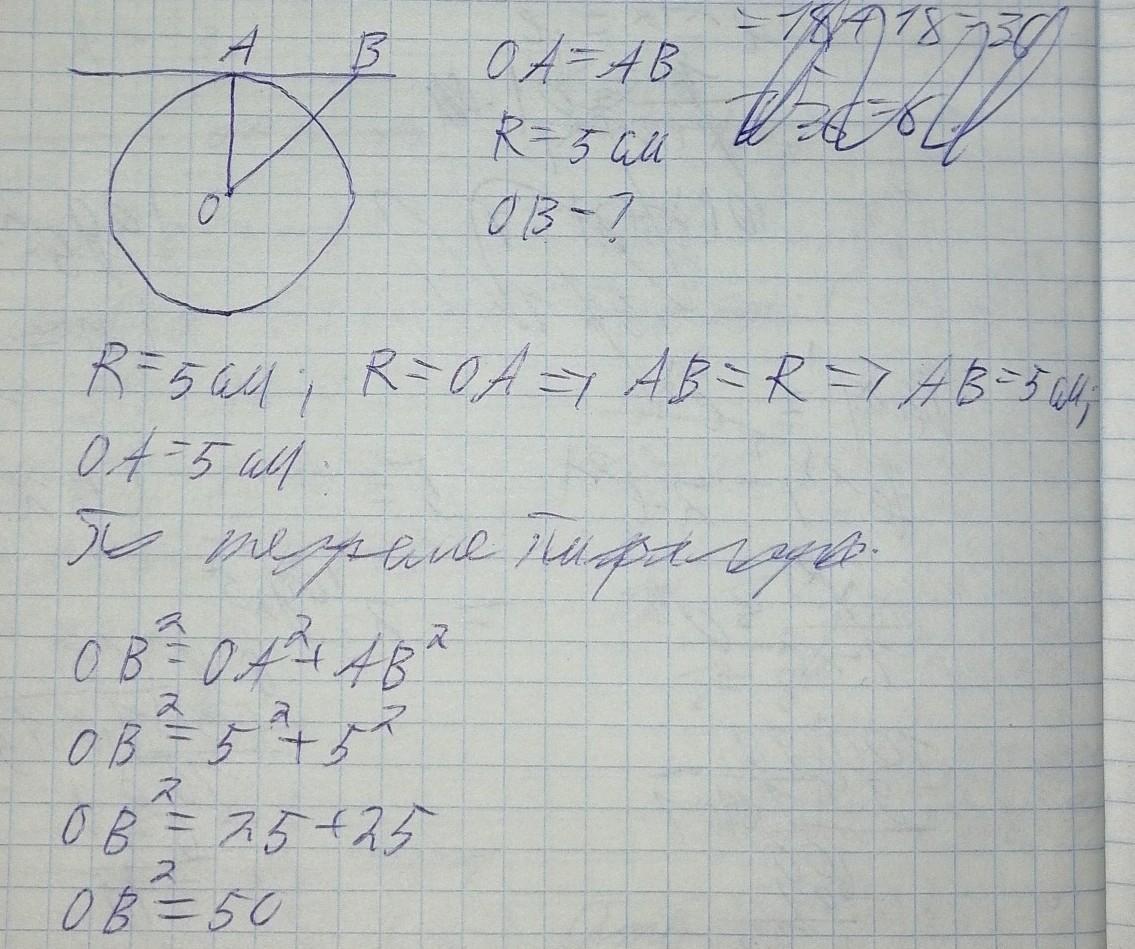 A B
O
OA = AB
R = 5 см
OB - ?
R = 5 см; R = OA => AB = R => AB = 5 см;
OA = 5 см.
По теореме Пифагора.
OB² = OA² + AB²
OB² = 5² + 5²
OB² = 25 + 25
OB² = 50